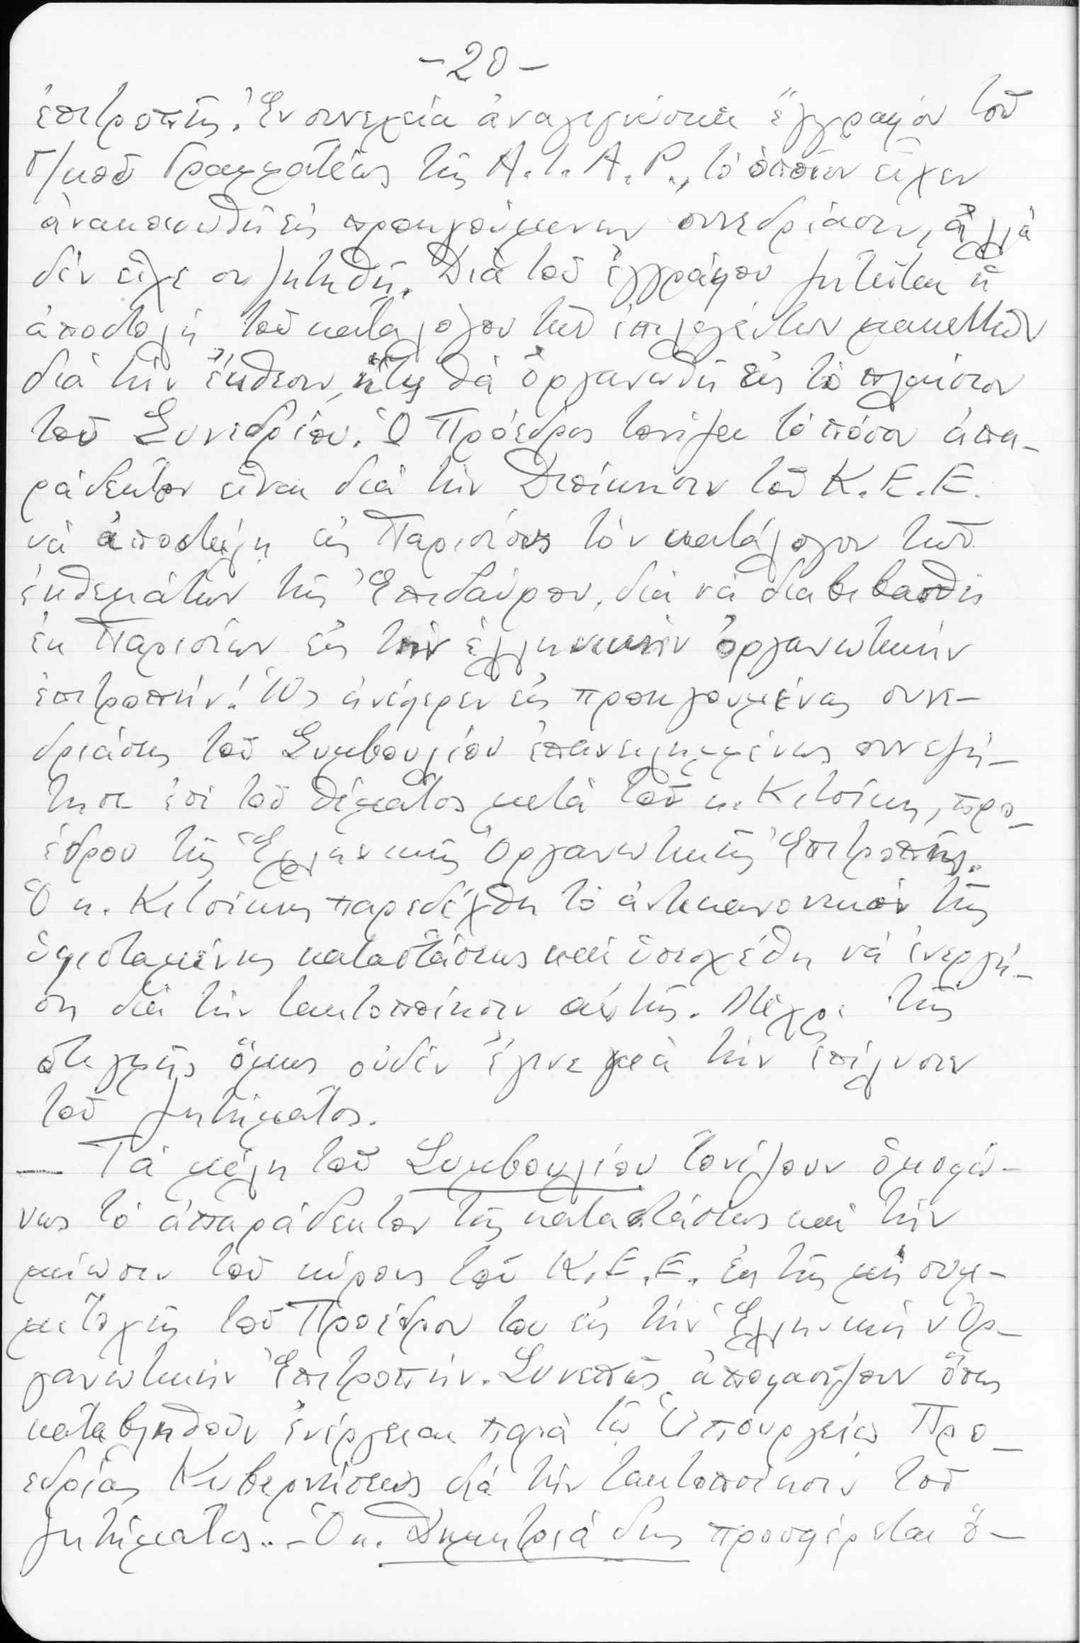 -20-
ἐπιτροπῆς. Ἐν συνεχείᾳ ἀναγιγνώσκει ἔγγραφον τοῦ
Γ/κοῦ Γραμματέως τῆς A.I.A.P., τὸ ὁποῖον εἶχεν
ἀνακοινωθῆ εἰς προηγούμενην συνεδρίασιν, ἀλλὰ
δὲν εἶχε συζητηθῆ. Διὰ τοῦ ἐγγράφου ζητεῖται ἡ
ἀποστολὴ τοῦ καταλόγου τῶν ἐπιλεγέντων μακεττῶν
διὰ τὴν ἔκθεσιν, ἥτις θὰ ὀργανωθῆ εἰς τὸ πλαίσιον
τοῦ Συνεδρίου. Ὁ Πρόεδρος τονίζει τὸ πόσον ἀπα-
ράδεκτον εἶναι διὰ τὴν Διοίκησιν τοῦ Κ.Ε.Ε.
νὰ ἀποστείλῃ εἰς Παρισίους τὸν κατάλογον τῶν
ἐκθεμάτων τῆς Ἐπιδαύρου, διὰ νὰ διαβιβασθῆ
ἐκ Παρισίων εἰς τὴν ἑλληνικὴν ὀργανωτικὴν
ἐπιτροπήν! Ὡς ἀνέφερεν εἰς προηγουμένας συνε-
δριάσεις τοῦ Συμβουλίου ἐπανειλημμένως συνεζή-
τησε ἐπὶ τοῦ θέματος μετὰ τοῦ κ. Κιτσίκη, προ-
έδρου τῆς Ἑλληνικῆς Ὀργανωτικῆς Ἐπιτροπῆς.
Ὁ κ. Κιτσίκης παρεδέχθη τὸ ἀντικανονικὸν τῆς
ὑφισταμένης καταστάσεως καὶ ὑπεσχέθη νὰ ἐνεργή-
σῃ διὰ τὴν τακτοποίησιν αὐτῆς. Μέχρι τῆς
στιγμῆς ὅμως οὐδὲν ἔγινε γιὰ τὴν ἐπίλυσιν
τοῦ ζητήματος.
— Τὰ μέλη τοῦ Συμβουλίου τονίζουν ὁμοφώ-
νως τὸ ἀπαράδεκτον τῆς καταστάσεως καὶ τὴν
μείωσιν τοῦ κύρους τοῦ Κ.Ε.Ε. ἐκ τῆς μὴ συμ-
μετοχῆς τοῦ Προέδρου του εἰς τὴν Ἑλληνικὴν Ὀρ-
γανωτικὴν Ἐπιτροπήν. Συνεπῶς ἀποφασίζουν ὅπως
καταβληθοῦν ἐνέργειαι παρὰ τῷ Ὑπουργείῳ Προ-
εδρίας Κυβερνήσεως διὰ τὴν τακτοποίησιν τοῦ
ζητήματος. - Ὁ κ. Δημητριάδης προσφέρεται ὅ-